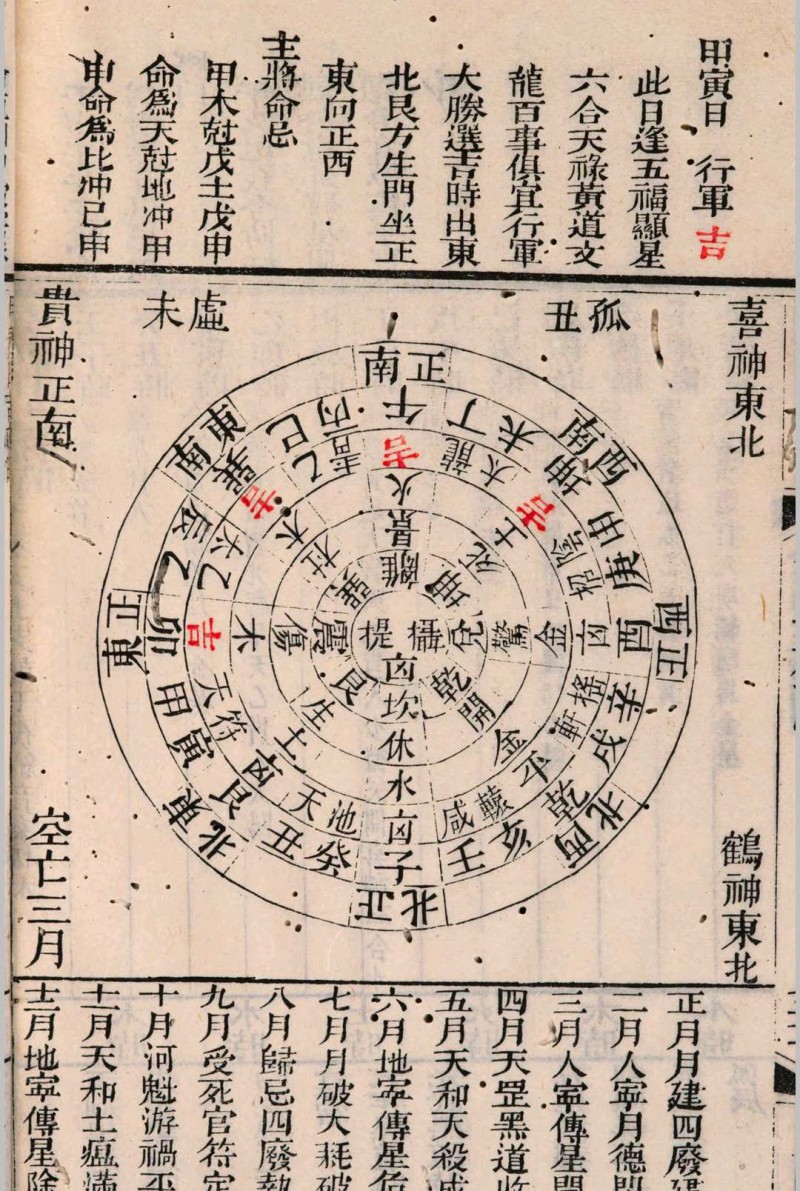 甲寅日 行軍吉
此日逢五福顯星
六合天祿黃道文
龍百事俱宜行軍
大勝選吉時出東
北艮方生門坐正
東向正西
主將命忌
甲木尅戊土戊申
命爲天尅地冲甲
申命爲比冲己申
喜神東北
鶴神東北
孤丑
虛未
貴神正南
空亡三月
正南
西南
正西
西北
正北
東北
正東
東南
丙午丁
未坤申
庚酉辛
戌乾亥
壬子癸
丑艮寅
甲卯乙
辰巽巳
青龍
吉
太乙
吉
吉
天符
凶
天池
凶
咸
軒轅
搖
凶
招
陰
吉
火
土
金
金
水
土
木
木
景
死
驚
開
休
生
傷
杜
離
坤
兌
乾
坎
艮
震
巽
攝提
凶
正月月建四廢
二月人寧月德
三月人寧傳星
四月天罡黑道
五月天和天殺
六月地寧傳星危
七月月破大耗破
八月歸忌四廢執
九月受死官符定
十月河魁游禍平
十一月天和土瘟滿
十二月地寧傳星除